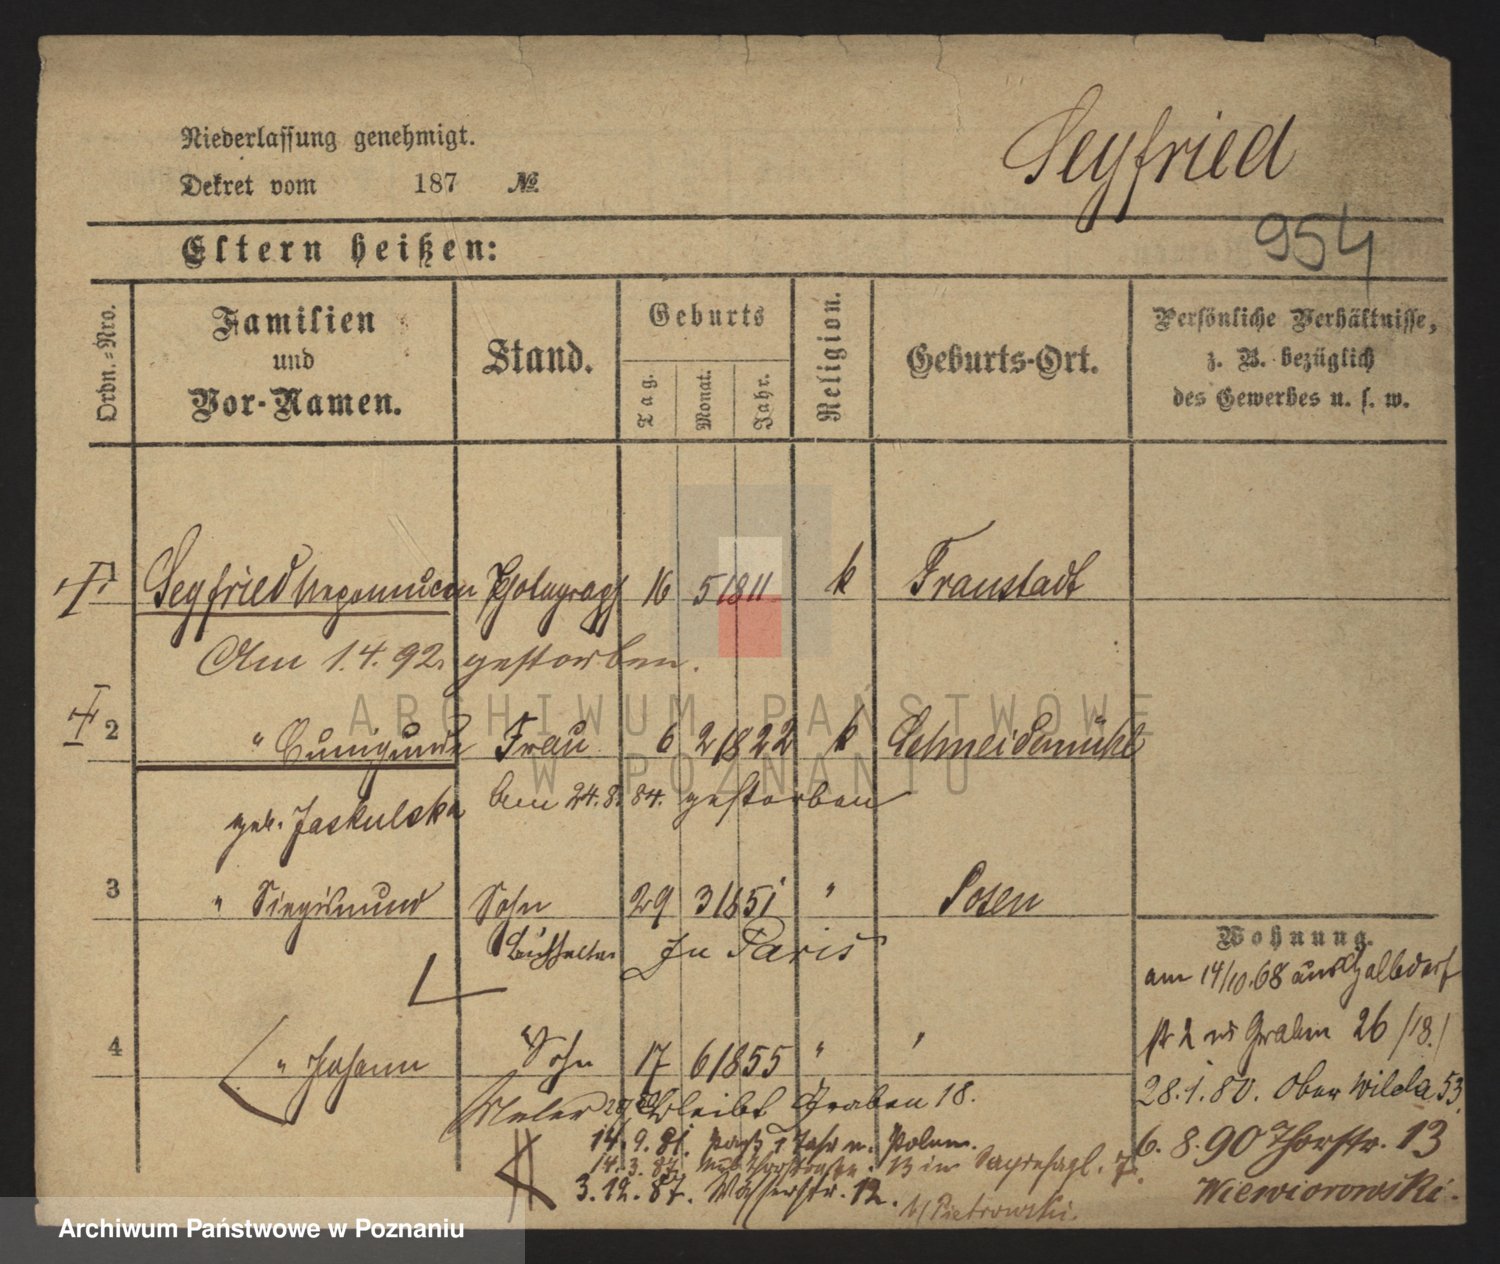 Niederlassung genehmigt.
Dekret vom 187 №
Seyfried
954
Eltern heißen:
Ordn.-Nro.
Familien und Vor-Namen.
Stand.
Geburts
Tag. Monat. Jahr.
Religion.
Geburts-Ort.
Persönliche Verhältnisse, z. B. bezüglich des Gewerbes u. s. w.
1 Seyfried Nepomucen Photograph 16 5 1811 k Fraustadt
Am 1.4.92. gestorben.
2 " Cunigunde Frau 6 2 1822 k Schneidemühl
geb. Jaskulska Am 24.8.84. gestorben
3 " Siegismund Sohn 29 3 1851 " Posen
Buchhalter In Paris
Wohnung.
am 14/10.68 aus Halbdorf
str 2 n Graben 26 /18./
4 " Johann Sohn 17 6 1855 " "
28.1.80. Ober Wilda 53.
Maler bleibt Graben 18.
14.9.81. Paß 1 Jahr n. Polen.
6.8.90 Thorstr. 13
14.3.87. 13 in
3.12.87. Wasserstr. 12.
Wiewiorowski.
b/Pietrowski.
ARCHIWUM PAŃSTWOWE
W POZNANIU
Archiwum Państwowe w Poznaniu